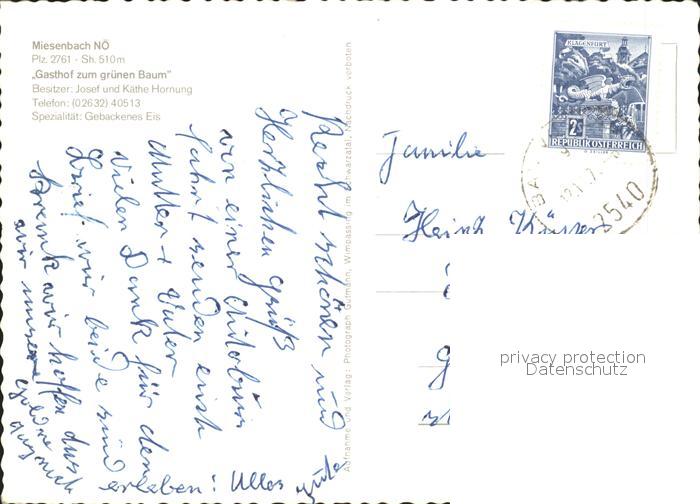 Miesenbach NÖ
Plz. 2761 - Sh. 510 m
„Gasthof zum grünen Baum"
Besitzer: Josef und Käthe Hornung
Telefon: (02632) 40513
Spezialität: Gebackenes Eis
Aufnahme und Verlag: Photograph Gutmann, Wimpassing im Schwarzatal, Nachdruck verboten
KLAGENFURT
2S
REPUBLIK ÖSTERREICH
2540
Familie
Heinz
Recht schönen und
Herzlichen Gruß
von einer Autobus
fahrt senden euch
Mutter + Vater
Vielen Dank für den
Brief wir beide sind
krank wir hoffen dass
wir unsere
erleben! Alles gute
privacy protection
Datenschutz